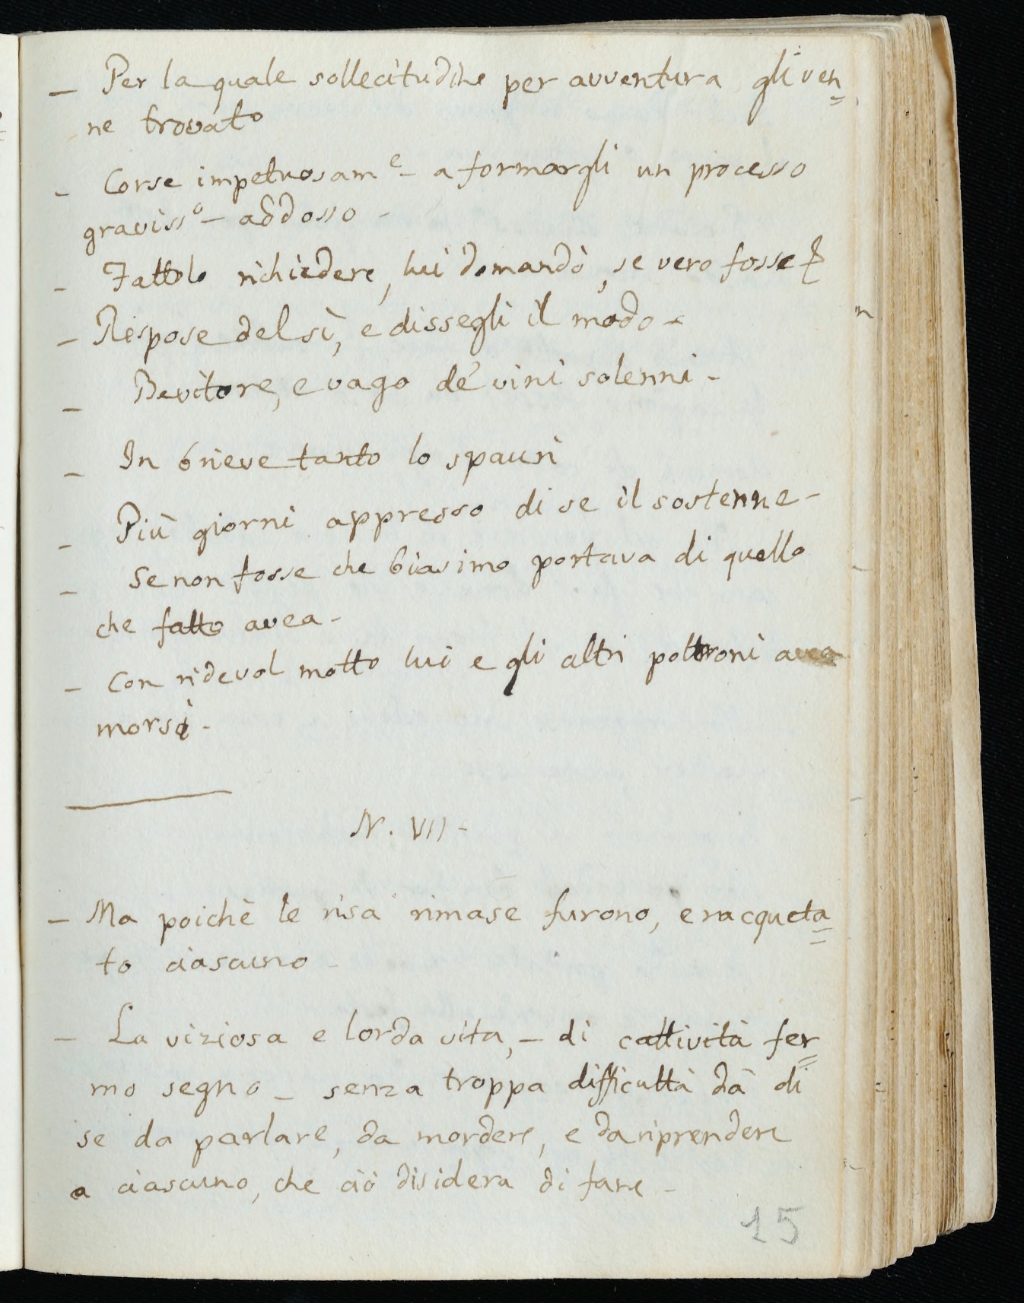 – Per la quale sollecitudine per avventura gli ven=
ne trovato
– Corse impetuosamᵉ – a formargli un processo
gravissᵒ – addosso –
– Fattolo richiedere, lui domandò, se vero fosse
– Respose del sì, e dissegli il modo –
– Bevitore, e vago de' vini solenni –
– In brieve tanto lo spaurì
– Più giorni appresso di se il sostenne –
– Se non fosse che biasimo portava di quello
che fatto avea –
– Con ridevol motto lui e gli altri poltroni avea
morsi –
N. VII –
– Ma poichè le risa rimase furono, e racqueta=
to ciascuno –
– La viziosa e lorda vita, – di cattività fer=
mo segno – senza troppa difficultà dà di
se da parlare, da mordere, e da riprendere
a ciascuno, che ciò disidera di fare –
15